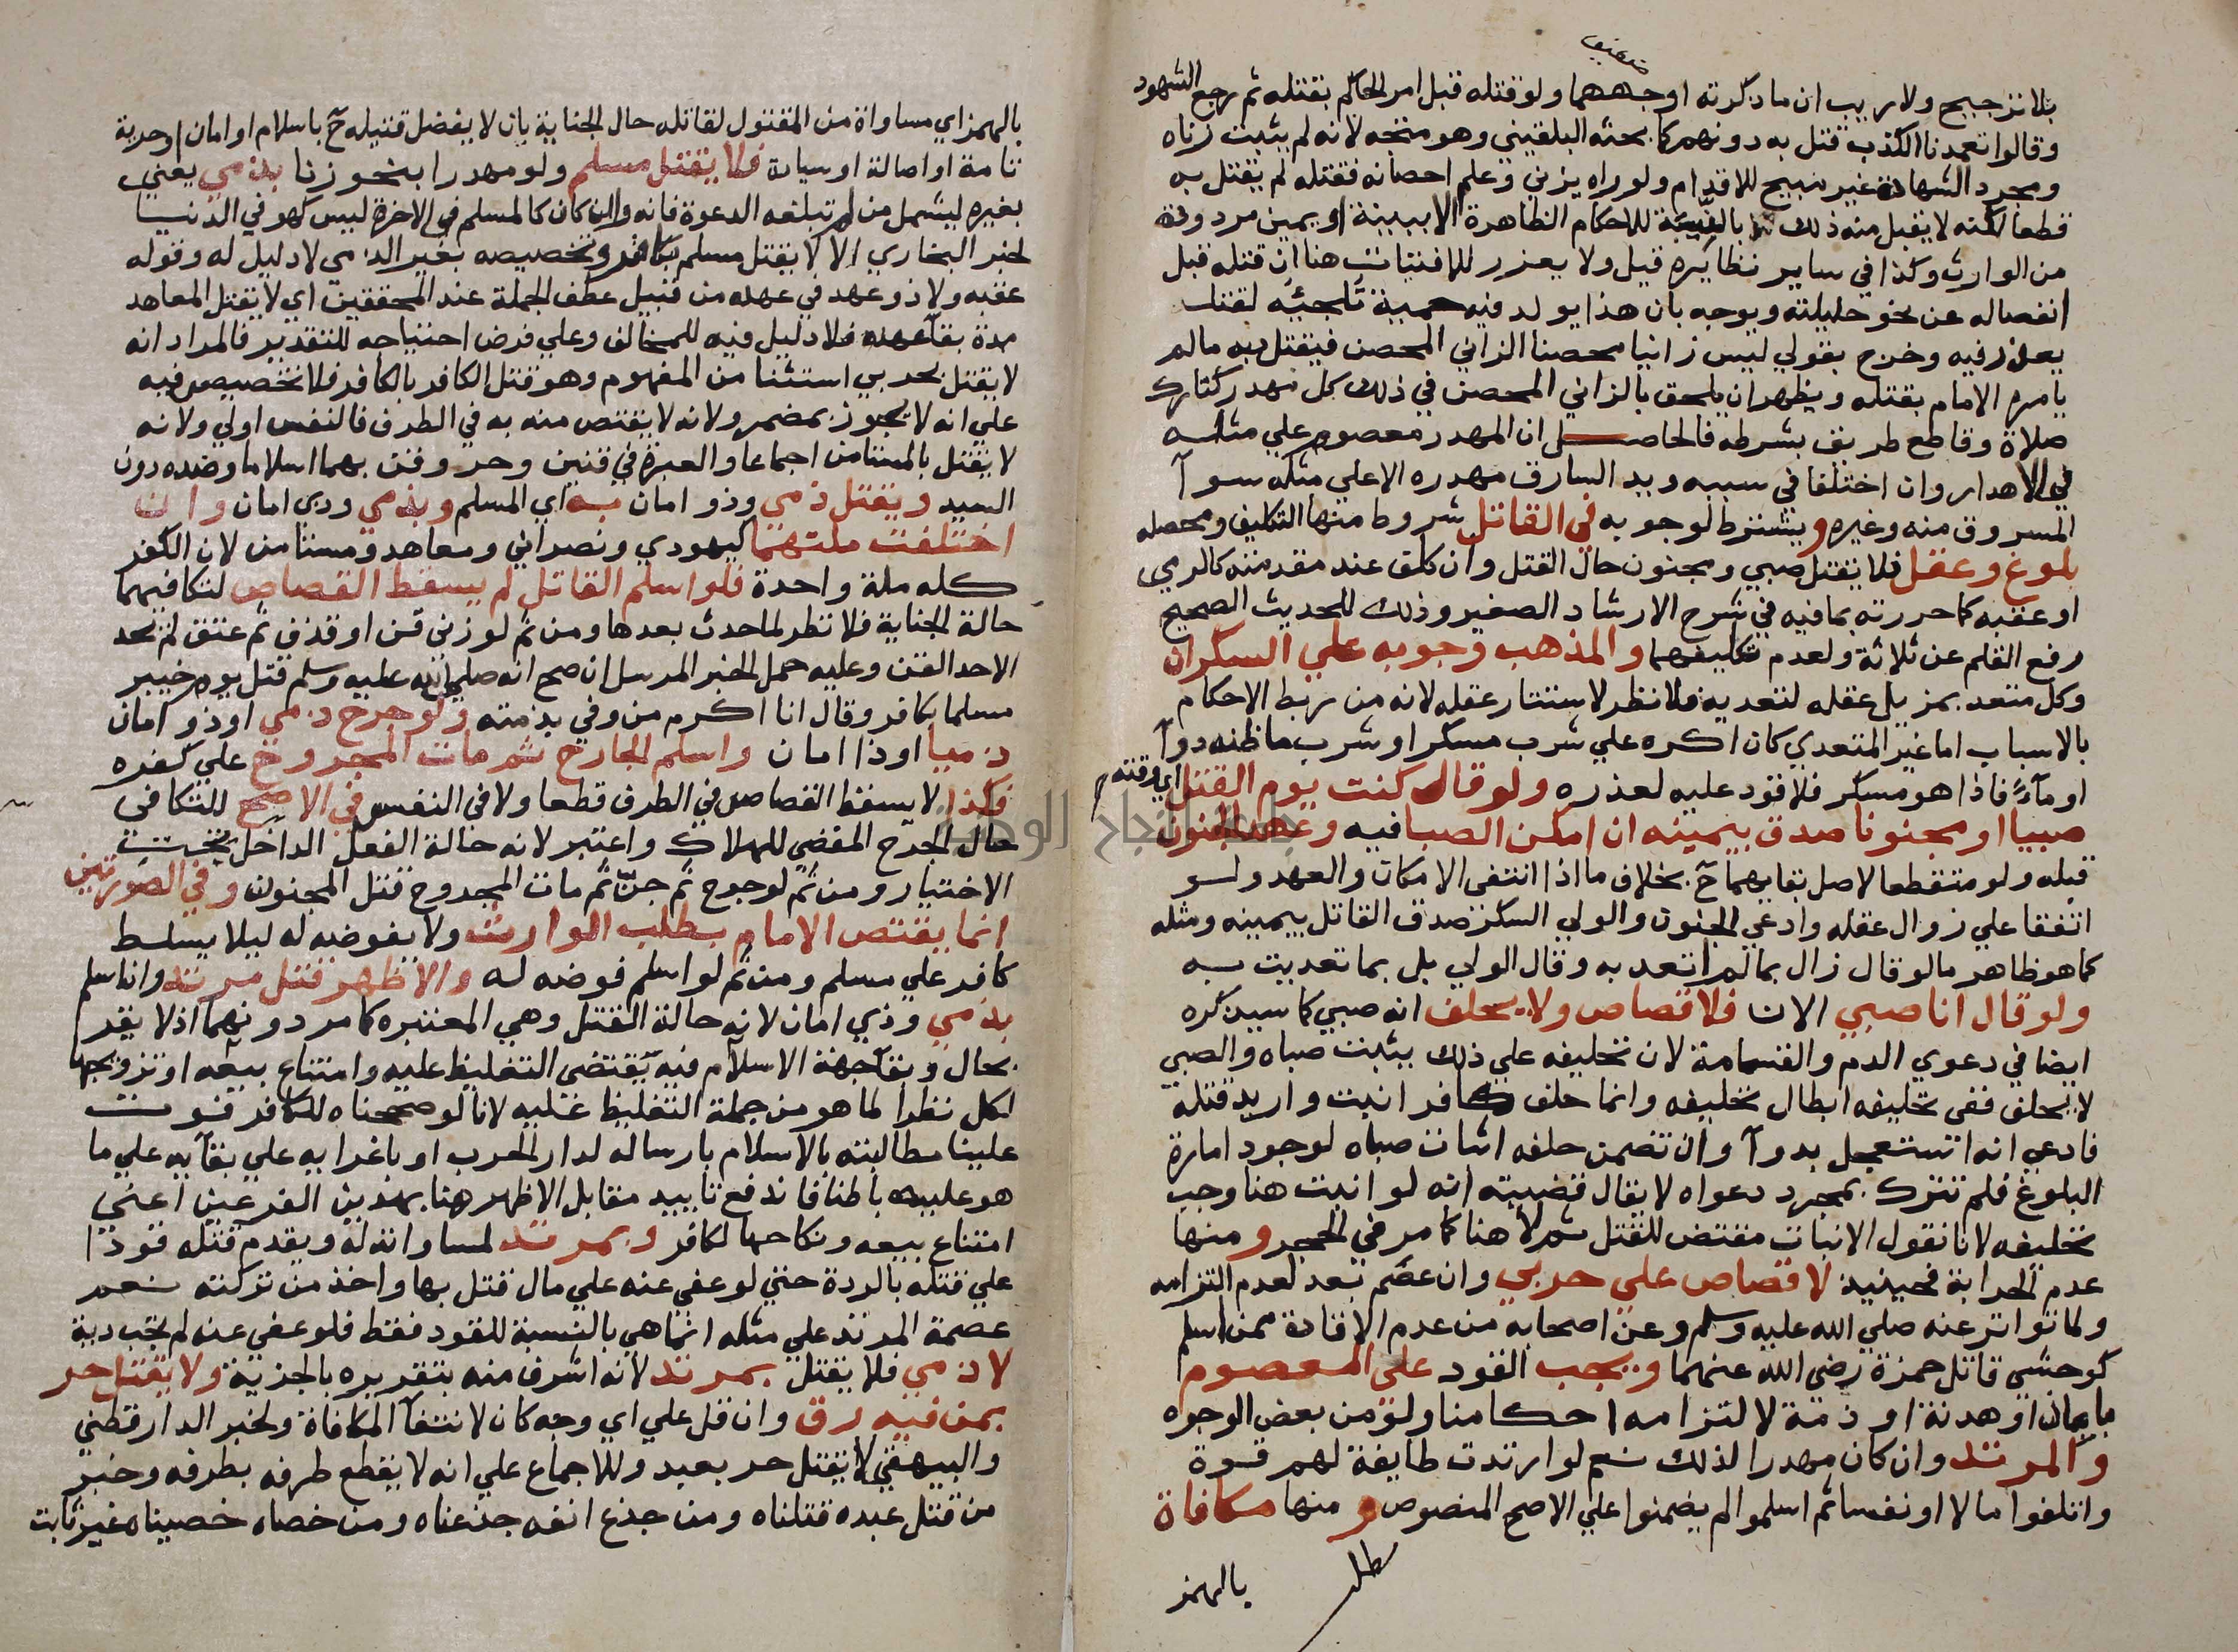 ضعيف
بلا ترجيح ولا ريب ان ما ذكرته اوجههما ولو قتله قبل امر الحاكم بقتله ثم رجع الشهود
وقالوا تعمدنا الكذب قتل به دونهم كما بحثه البلقيني وهو متجه لانه لم يثبت زناه
ومجرد الشهادة غير مبيح للاقدام ولو راه يزني وعلم احصانه فقتله لم يقتل به
قطعا لكنه لا يقبل منه ذلك بالنسبة للاحكام الظاهرة الا ببينة او يمين مردودة
من الوارث وكذا في ساير نظايره قيل ولا يعزر للافتيات هنا ان قتله قبل
انفصاله عن نحو حليلته ويوجه بان هذا يولد فيه حمية تلجئه لقتله
يعذر فيه وخرج بقولي ليس زانيا محصنا الزاني المحصن فيقتل به ما لم
يامره الامام بقتله ويظهر ان يلحق بالزاني المحصن في ذلك كل مهدر كتارك
صلاة وقاطع طريق بشرطه فالحاصل ان المهدر معصوم علي مثله
في الاهدار وان اختلفا في سببه ويد السارق مهدره الا علي مثله سوآ
المسروق منه وغيره ويشترط لوجوبه في القاتل شروط منها التكليف ومحصله
بلوغ وعقل فلا يقتل صبي ومجنون حال القتل وان كلف عند مقدمته كالرمي
او عقبه كما حررته بما فيه في شرح الارشاد الصغير وذلك للحديث الصحيح
رفع القلم عن ثلاثة ولعدم تكليفهما والمذهب وجوبه علي السكران
وكل متعد بمزيل عقله لتعديه فلا نظر لاستتار عقله لانه من ربط الاحكام
بالاسباب اما غير المتعدي كان اكره علي شرب مسكر او شرب ما ظنه دوآ
او مآءً فاذا هو مسكر فلا قود عليه لعذره ولو قال كنت يوم القتل اي وقته
صبيا او مجنونا صدق بيمينه ان امكن الصبا فيه وعهد الجنون
قبله ولو متقطعا لاصل بقايهما ح بخلاف ما اذا انتفي الامكان والعهد ولو
اتفقا علي زوال عقله وادعي الجنون والولي السكر صدق القاتل بيمينه ومثله
كما هو ظاهر ما لو قال زال بما لم اتعد به وقال الولي بل بما تعديت به
ولو قال انا صبي الان فلا قصاص ولا يحلف انه صبي كما سيذكره
ايضا في دعوي الدم والقسامة لان تحليفه علي ذلك يثبت صباه والصبي
لا يحلف ففي تحليفه ابطال تحليفه وانما حلف كافر انبت واريد قتله
فادعي انه استعجل بدوآ وان تضمن حلفه اثبات صباه لوجود امارة
البلوغ فلم تترك بمجرد دعواه لا يقال قضيته انه لو انبت هنا وجب
تحليفه لانا نقول الانبات مقتض للقتل ثم لا هنا كما مر في الحجر ومنها
عدم الحرابة فحينيذ لا قصاص علي حربي وان عصم بعد لعدم التزامه
ولما تواتر عنه صلي الله عليه وسلم وعن اصحابه من عدم الاقادة ممن اسلم
كوحشي قاتل حمزة رضي الله عنهما ويجب القود علي المعصوم
بايمان او هدنة او ذمة لالتزامه احكامنا ولو من بعض الوجوه
والمرتد وان كان مهدرا لذلك نعم لو ارتدت طايفة لهم قوة
واتلفوا مالا او نفسا ثم اسلموا لم يضمنوا علي الاصح المنصوص و منها مكافاة
بالهمز
بالهمز اي مساواة من المقتول لقاتله حال الجناية بان لا يفضل قتيله ح باسلام او امان او حرية
تامة او اصالة او سيادة فلا يقتل مسلم ولو مهدرا بنحو زنا بذمي يعني
بغيره ليشمل من لم تبلغه الدعوة فانه وان كان كالمسلم في الاخرة ليس كهو في الدنيا
لخبر البخاري الا لا يقتل مسلم بكافر وتخصيصه بغير الذمي لا دليل له وقوله
عقبه ولا ذو عهد في عهده من قبيل عطف الجملة عند المحققين اي لا يقتل المعاهد
مدة بقآ عهده فلا دليل فيه للمخالف وعلي فرض احتياجه للتقدير فالمراد انه
لا يقتل بحربي استثنا من المفهوم وهو قتل الكافر بالكافر فلا تخصيص فيه
علي انه لا يجوز بمضمر ولانه لا يقتص منه به في الطرف فالنفس اولي ولانه
لا يقتل بالمستامن اجماعا والعبرة في قنين وحر وقن بهما اسلاما وضده دون
السيد ويقتل ذمي وذو امان به اي المسلم وبذمي وذي امان وان
اختلفت ملتهما كيهودي ونصراني ومعاهد ومستامن لان الكفر
كله ملة واحدة فلو اسلم القاتل لم يسقط القصاص لتكافيهما
حالة الجناية فلا نظر لما حدث بعدها ومن ثم لو زني قن او قذف ثم عتق لم يحد
الا حد القن وعليه حمل الخبر المرسل ان صح انه صلي الله عليه وسلم قتل يوم خيبر
مسلما بكافر وقال انا اكرم من وفي بذمته ولو جرح ذمي او ذو امان
ذميا او ذا امان واسلم الجارح ثم مات المجروح علي كفره
فكذا لا يسقط القصاص في الطرف قطعا ولا في النفس في الاصح للتكافي
حال الجرح المفضي للهلاك واعتبر لانه حالة الفعل الداخل تحت
الاختيار ومن ثم لو جرح ثم جنّ ثم مات المجروح قتل المجنون وفي الصورتين
انما يقتص الامام بطلب الوارث ولا يفوضه له ليلا يسلط
كافر علي مسلم ومن ثم لو اسلم فوضه له والاظهر قتل مرتد وان اسلم
بذمي وذي امان لانه حالة القتل وهي المعتبره كما مر دونهما اذ لا يقر
بحال وبقآ جهة الاسلام فيه يقتضي التغليظ عليه وامتناع بيعه او تزويجها
لكل نظرا لما هو من جملة التغليظ عليه لانا لو صححناه للكافر فوت
علينا مطالبته بالاسلام بارساله لدار الحرب او باغرايه علي بقآيه علي ما
هو عليه باطنا فاندفع تاييد مقابل الاظهر هنا بهذين الفرعين اعني
امتناع بيعه ونكاحها لكافر وبمرتد لمساواته له ويقدم قتله قودا
علي قتله بالردة حتي لو عفي عنه علي مال قتل بها واخذ من تركته نعم
عصمة المرتد علي مثله انما هي بالنسبة للقود فقط فلو عفي عنه لم تجب دية
لا ذمي فلا يقتل بمرتد لانه اشرف منه بتقريره بالجزية ولا يقتل حر
بمن فيه رق وان قل علي اي وجه كان لانتفآ المكافاة ولخبر الدارقطني
والبيهقي لا يقتل حر بعبد وللاجماع علي انه لا يقطع طرفه بطرفه وخبر
من قتل عبده قتلناه ومن جذع انفه جذعناه ومن خصاه خصيناه غير ثابت